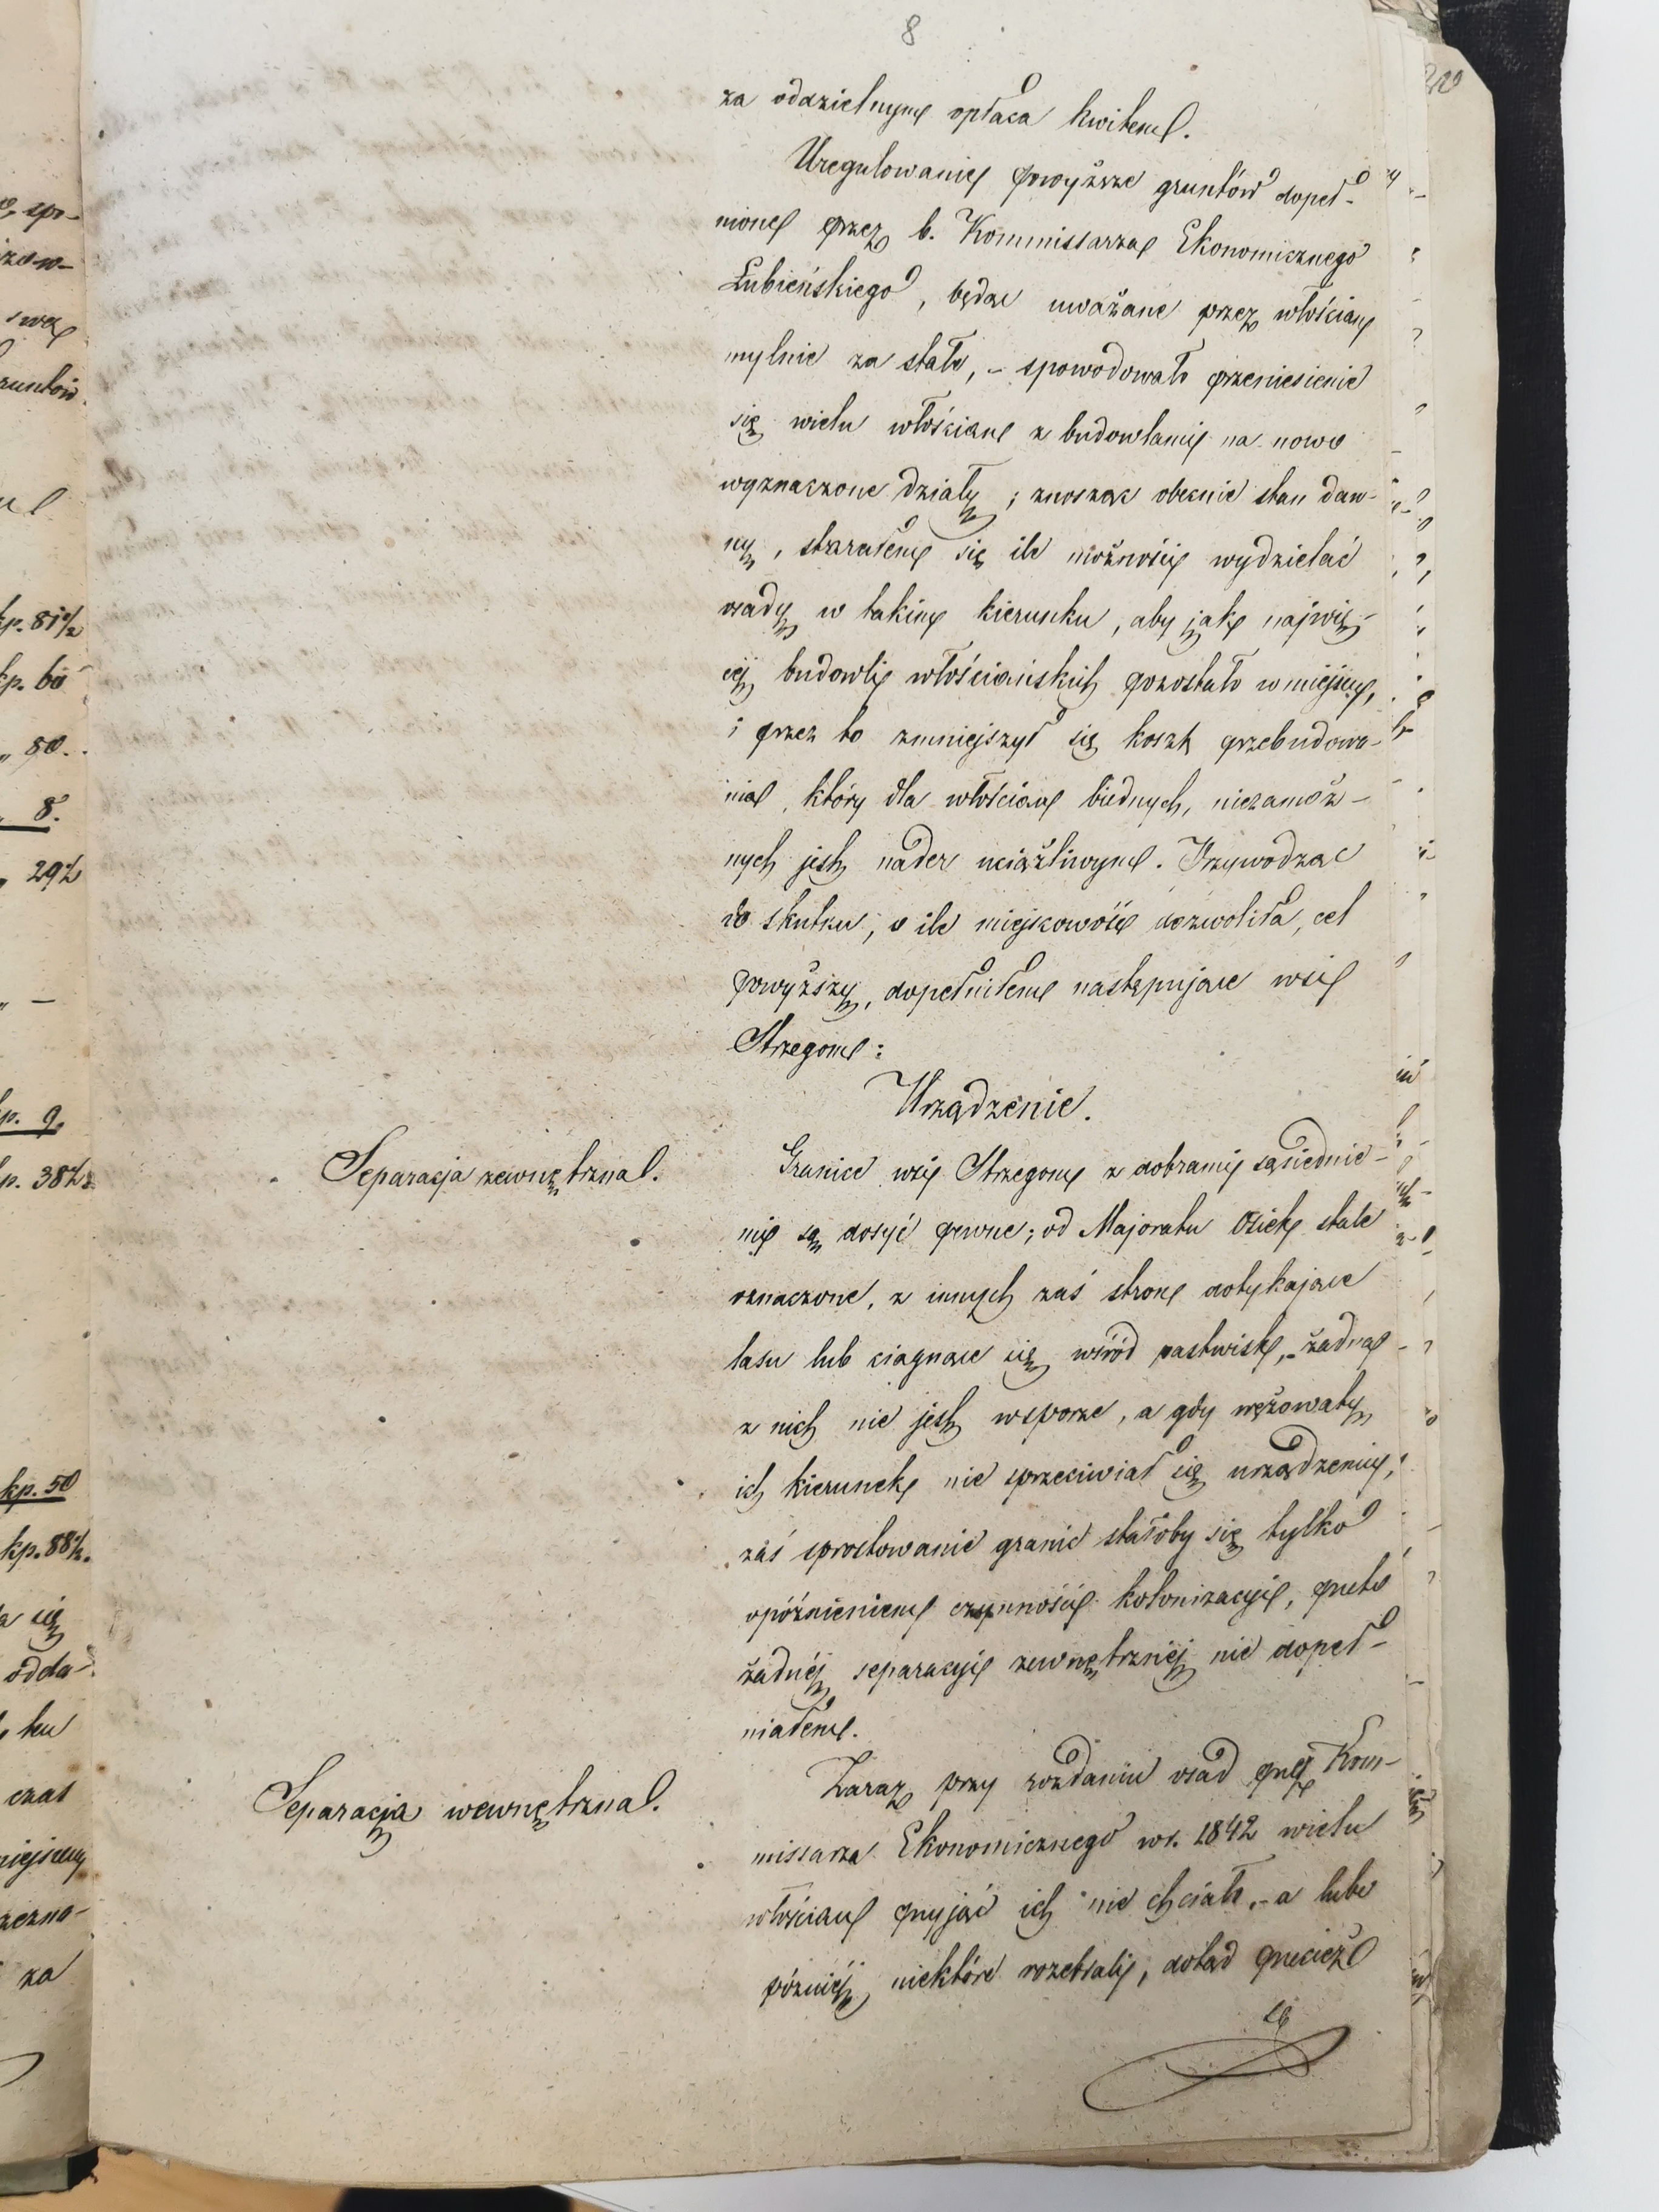 8
za oddzielnym opłaca kwitem.
Uregulowanie powyższe gruntów dopeł-
nione przez b. Kommissarza Ekonomicznego
Łubieńskiego, będąc uważane przez włościan
mylnie za stałe, - spowodowało przeniesienie
się wielu włościan z budowlami na nowo
wyznaczone działy; znosząc obecnie stan daw-
ny, starałem się ile możności wydzielać
osady w takim kierunku, aby jak najwię-
cej budowli włościańskich pozostało w miejscu,
i przez to zmniejszył się koszt przebudowa-
nia, który dla włościan biednych, niezamoż-
nych jest nader uciążliwym. Przywodząc
do skutku, o ile miejscowość dozwoliła, cel
powyższy, dopełniłem następujące wsi
Strzegom:
Urządzenie.
Separacja zewnętrzna.
Granice wsi Strzegom z dobrami sąsiednie-
mi są dosyć pewne; od Majoratu Osiek stale
oznaczone, z innych zaś stron dotykające
lasu lub ciągnące się wśród pastwisk, - żadna
z nich nie jest w sporze, a gdy wężowaty
ich kierunek nie sprzeciwiał się urządzeniu,
zaś sprostowanie granic stałoby się tylko
opóźnieniem czynności kolonizacyi, przeto
żadnéj separacyi zewnętrznéj nie dopeł-
niałem.
Separacja wewnętrzna.
Zaraz przy rozdaniu osad przez Kom-
missarza Ekonomicznego w r. 1842 wielu
włościan przyjąć ich nie chciało, - a lubo
późniéj niektóre rozebrali, dotąd przecież